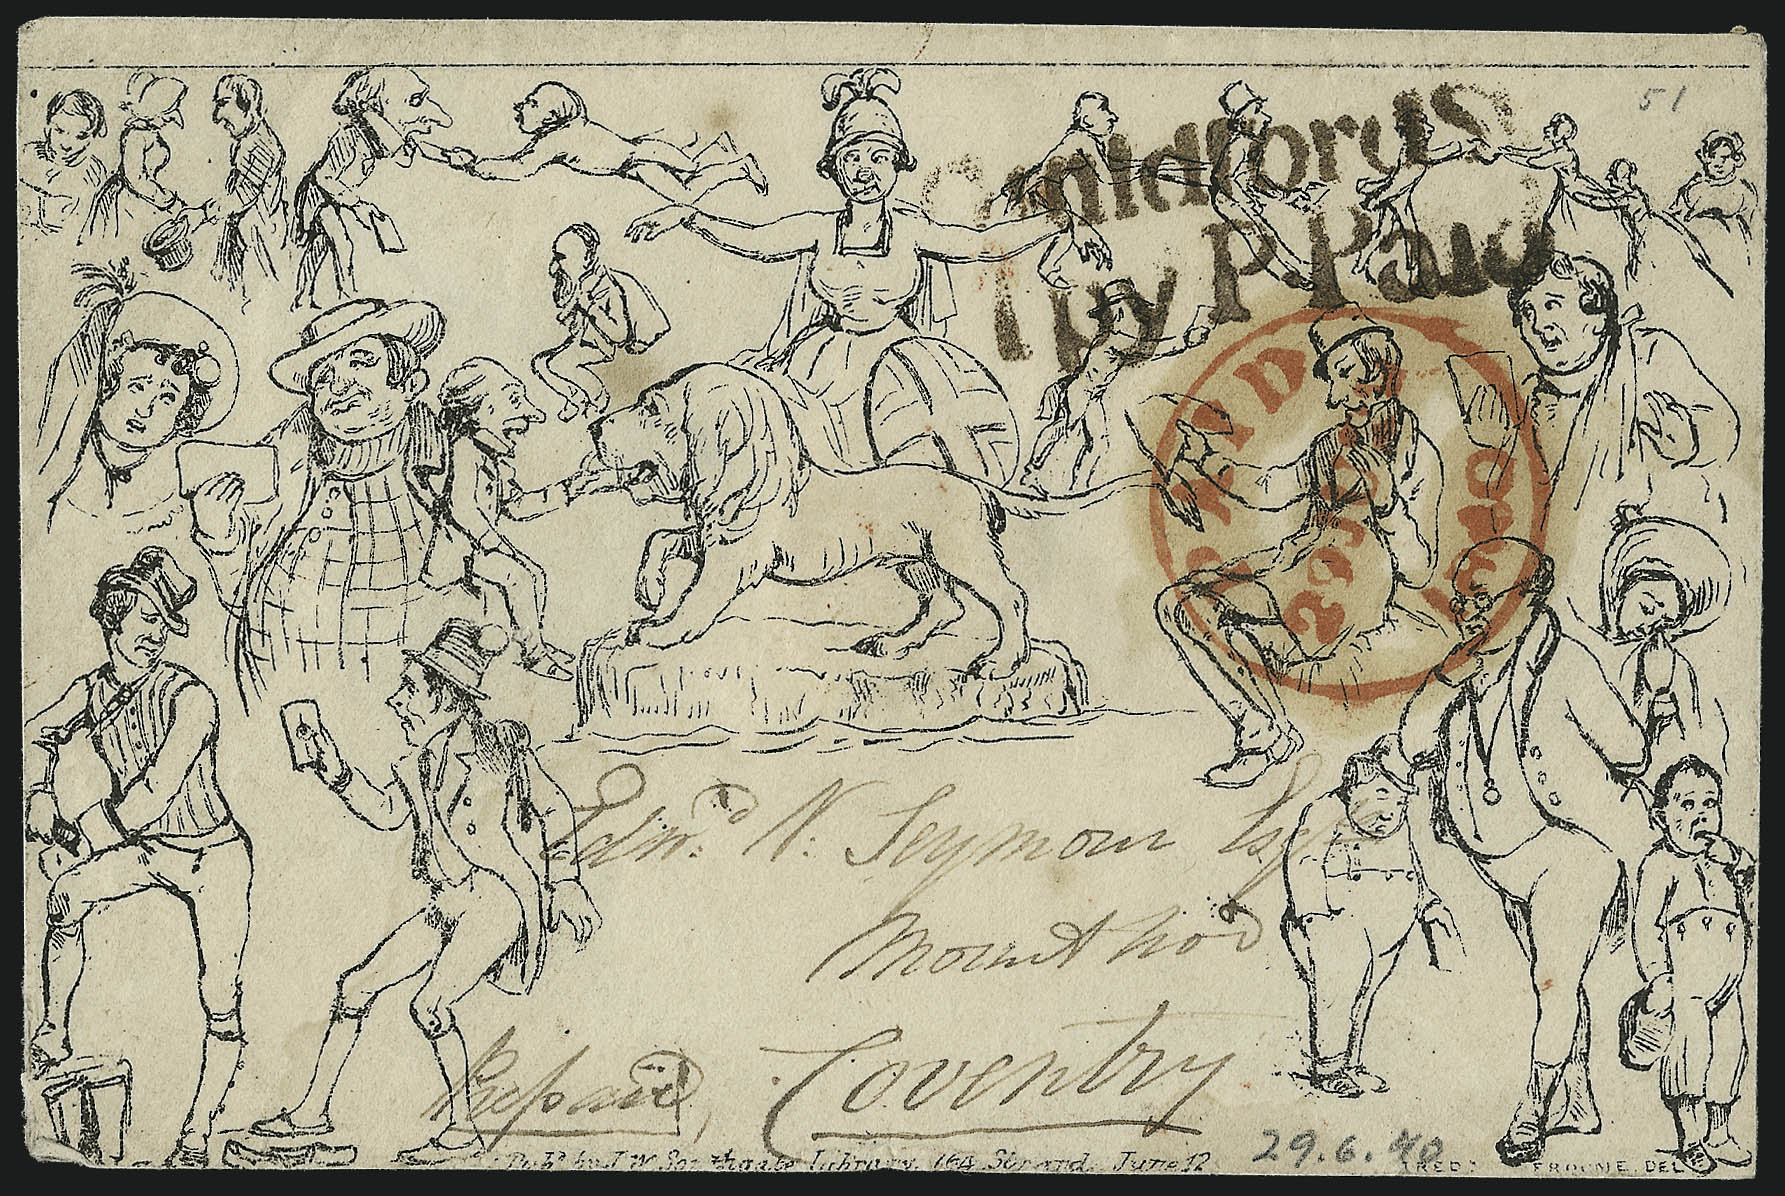 51
Guildford St
1py P. Paid
PAID
29 JU
1840
Edmd. N. Seymour Esqre
Mount Nod
Coventry
Prepaid,
Pubd. by J.W. Southgate Library, 164 Strand, June 12
29.6.40
FRED. FROOME, DEL